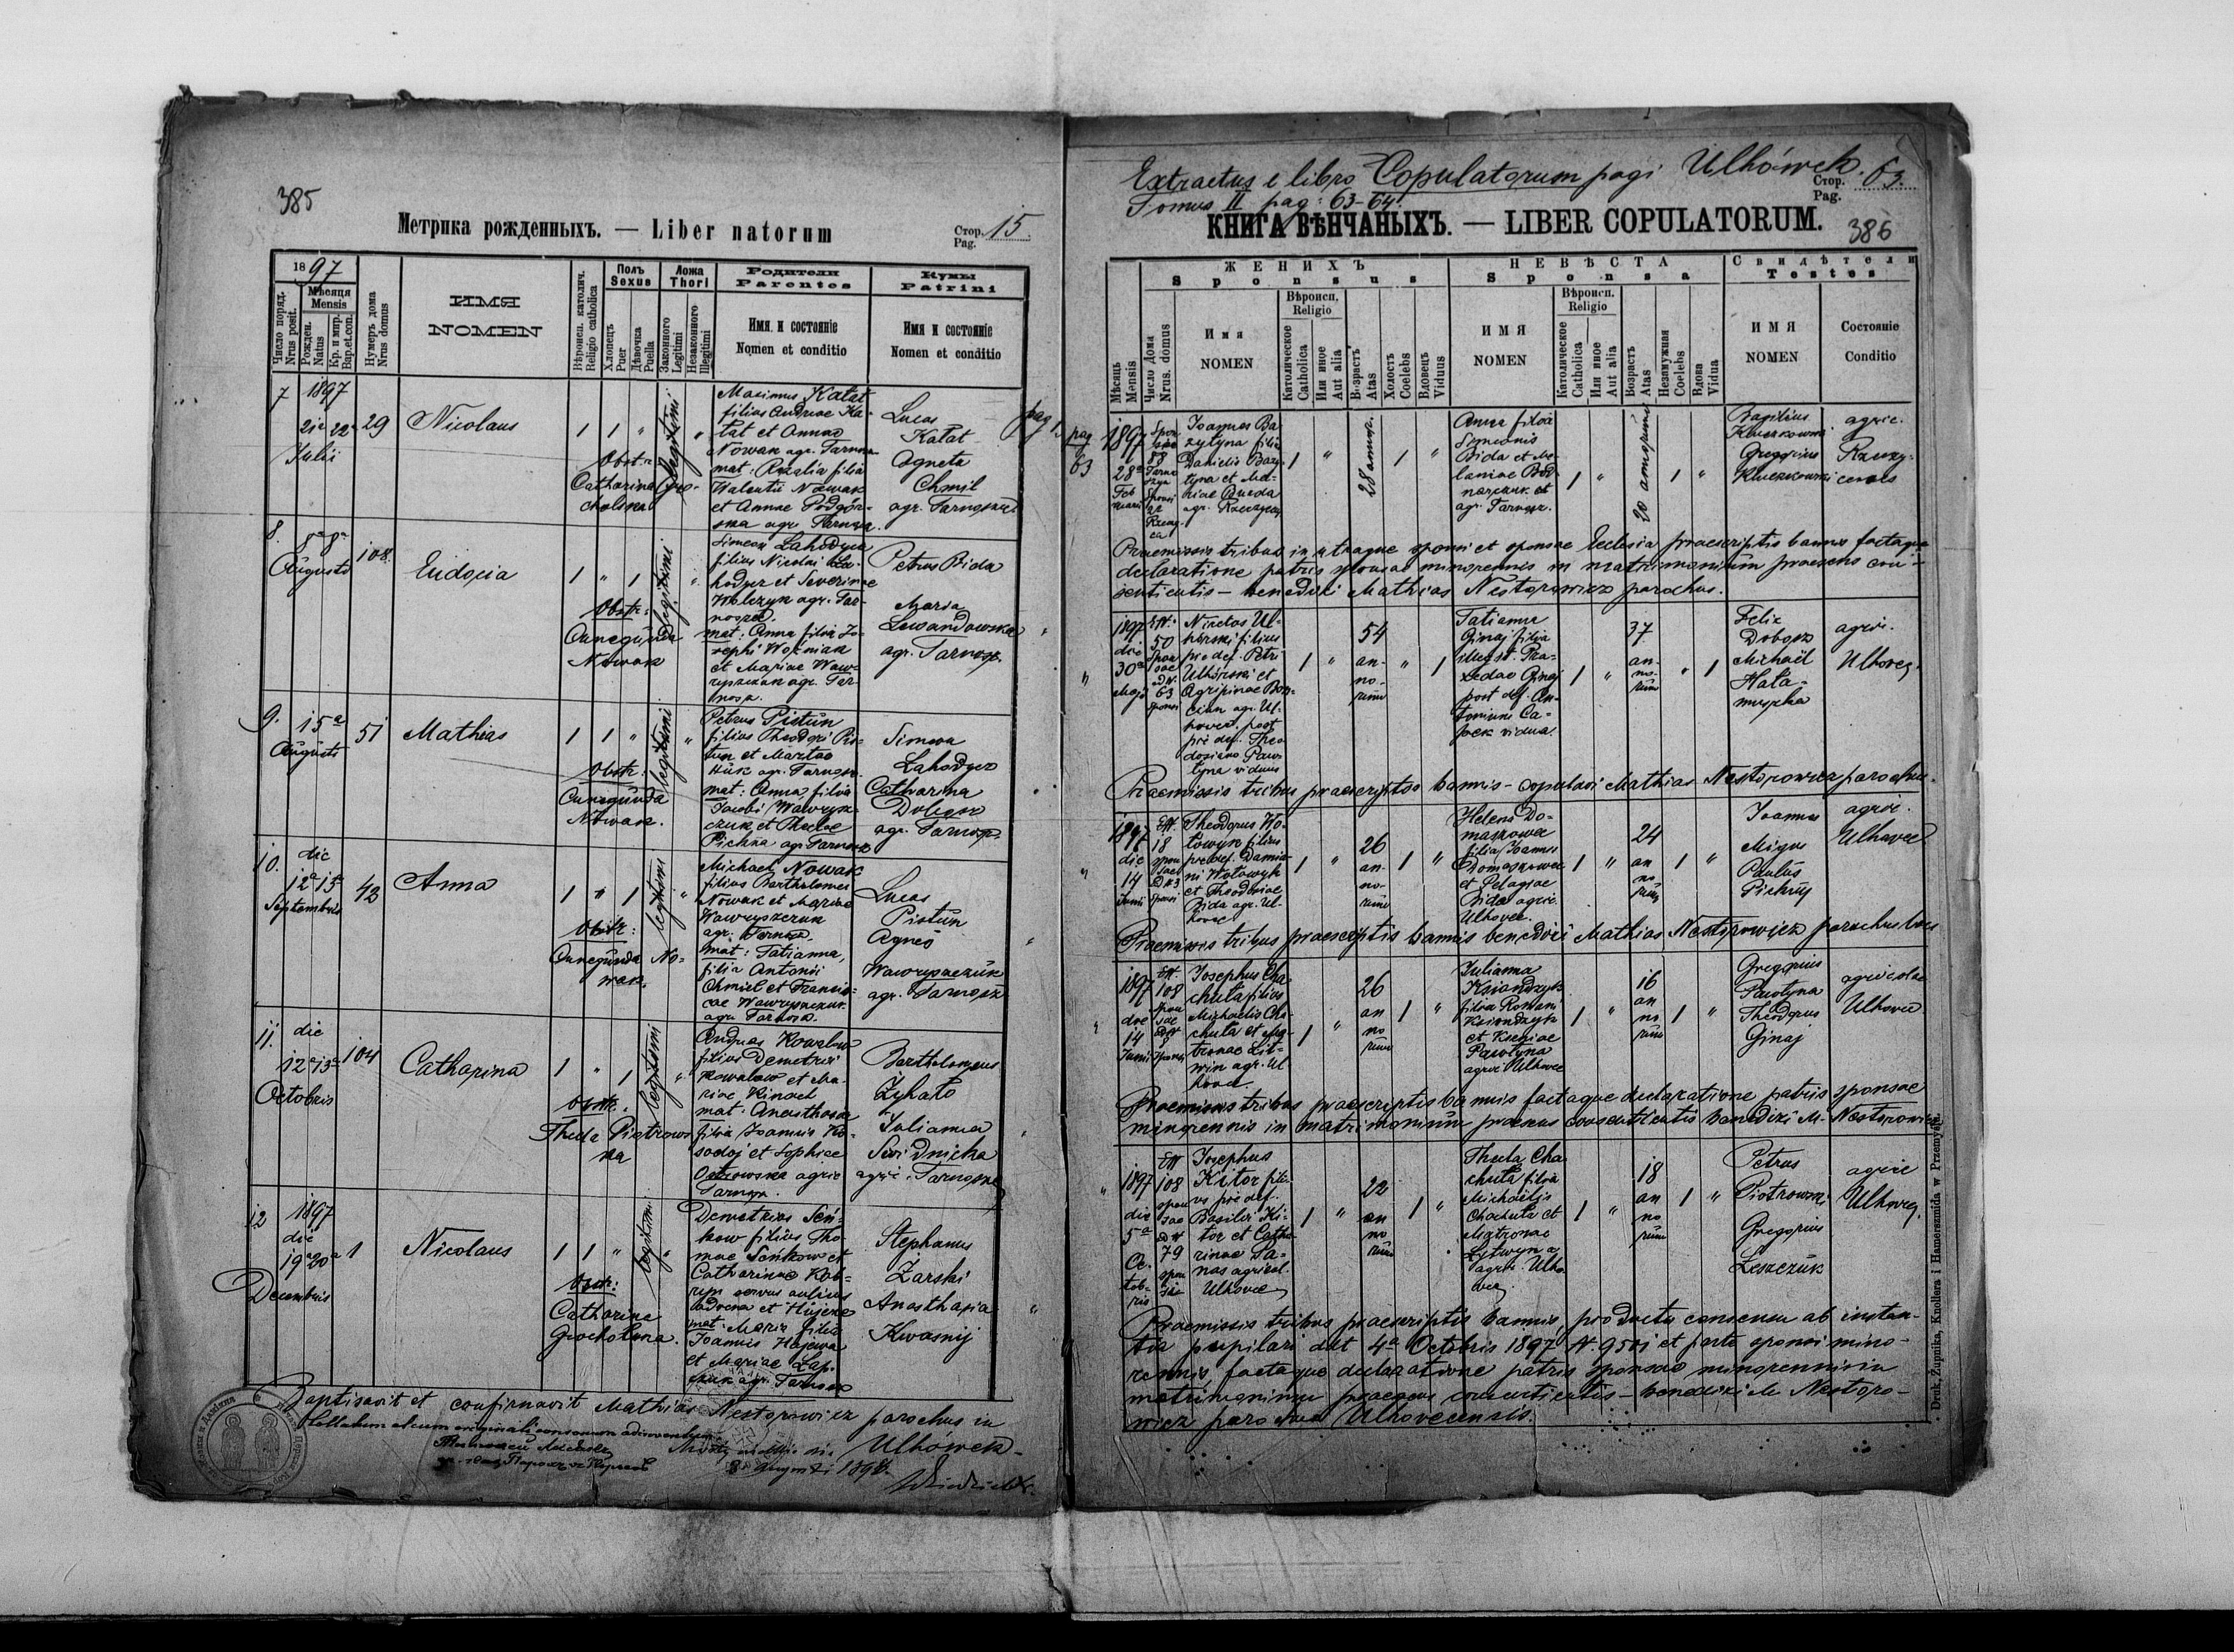 385
Метрика рожденныхъ. — Liber natorum
Стор. Pag. 15.
1897
Число поряд. Nrus posit.
Мѣсяця Mensis
Рожден. Natus
Кр. и мир. Bap. et. con.
Нумеръ дома Nrus domus
ИМЯ
NOMEN
Вѣроисп. католич. Religio catholica
Полъ Sexus
Хлопецъ Puer
Дѣвочка Puella
Ложа Thori
Законного Legitimi
Незаконного Illegitimi
Родители
Parentes
Имя и состояніе
Nomen et conditio
Кумы
Patrini
Имя и состояніе
Nomen et conditio
7 1897
21a 22a 29 Nicolaus 1 1 " legitimi "
Julii
Obstr:
Catharina Gro-
cholska
Maximus Kałat
filius Andreae Ka-
łat et Annae
Nowak agr. Tarnosz.
mat: Rozalia filia
Walentii Nowak
et Annae Podgór-
ska agr. Tarnosz.
Lucas
Kałat
Agneta
Chmil
agr. Tarnoszyn
8. 7a 8a 108. Eudocia 1 " 1 legitimi "
Augusti
Obstr:
Cunegunda
Nowak
Simeon Lahodycz
filius Nicolai La-
hodycz et Severinae
Wolczyk agr. Tar-
nosz.
mat: Anna filia Jo-
sephi Woźniak
et Mariae Waw-
ryszczuk agr. Tar-
nosz.
Petrus Bida
Maria
Lewandowska
agr. Tarnosz.
9. 15a 51 Mathias 1 1 " legitimi "
Augusti
Obstr:
Cunegunda
Nowak.
Petrus Pistun
filius Theodori Pis-
tun et Martae
Huk agr. Tarnosz.
mat: Anna filia
Jacobi Wawrysz-
czuk et Theclae
Pichna agr. Tarnosz.
Simeon
Lahodycz
Catharina
Dobosz
agr. Tarnosz.
10. die
12a 13a 42 Anna 1 " 1 legitimi "
Septembris
Obstr:
Cunegunda No-
wak.
Michael Nowak
filius Bartholomei
Nowak et Mariae
Wawryszczuk
agr. Tarnosz.
mat: Tatianna,
filia Antonii
Chmiel et Francis-
cae Wawryszczuk
agr. Tarnosz.
Lucas
Pistun
Agnes
Wawryszczuk
agr. Tarnosz.
11. die
12a 13a 104 Catharina 1 " 1 legitimi "
Octobris
Obstr.
Thecla Piotrows-
ka
Andreas Kowalow
filius Demetrii
Kowalow et Ma-
riae Kinach
mat: Anasthasia
filia Joannis Ko-
sodoj et Sophiae
Ostrowska agric.
Tarnosz.
Bartholomeus
Żyhało
Julianna
Swidnicka
agric. Tarnoszyn
12 1897
die
19a 20a 1 Nicolaus 1 1 " legitimi "
Decembris
Obstr:
Catharina
Grocholska.
Demetrius Seń-
kow filius Tho-
mae Seńkow et
Catharinae Kob-
ryn servus aulicus
mat: Maria filia
Joannis
et Mariae
agr. Tarnosz
Stephanus
Żarski
Anasthasia
Kwasnij
Baptisavit et confirmavit Mathias Nestorowicz parochus in
Ulhówek
Augusti 1898.
Extractus e libro Copulatorum pagi Ulhówek.
Tomus II pag: 63-64.
Стор. Pag. 63.
КНИГА ВѢНЧАНЫХЪ. — LIBER COPULATORUM.
386
Мѣсяцъ Mensis
Число дома Nrus. domus
ЖЕНИХЪ
Sponsus
Имя
NOMEN
Вѣроисп. Religio
Католическое Catholica
Или иное Aut alia
Возрастъ Atas
Холостъ Coelebs
Вдовецъ Viduus
НЕВѢСТА
Sponsa
ИМЯ
NOMEN
Вѣроисп. Religio
Католическое Catholica
Или иное Aut alia
Возрастъ Atas
Незамужная Coelebs
Вдова Vidua
Свидѣтели
Testes
ИМЯ
NOMEN
Состояніе
Conditio
pag 63
1897
28a
Feb
ruarii
Joannes Ba
zytyna filius
Danielis Bazy-
tyna et Me-
agr. Rzeczycy
1 " 28 annor. 1 "
Anna filia
Simeonis
Bida et Me-
laniae Bod-
narczuk et
agr. Tarnosz.
1 " 20 annorum 1 "
Basilius
Kluczkowski
Gregorius
Kluczkowski
agric.
Rzeczy-
censes
Praemissis tribus in utraque sponsi et sponsae Ecclesia praescriptis bannis factaque
declaratione patris sponsae minorennis in matrimonium praesens con-
sentientis — benedixi Mathias Nestorowicz parochus.
1897
die
30a
Maji
50
63
Nicetas Ul-
hórski filius
prae def. Petri
Ulhórski et
Agripinae
agr. Ul-
hovec. post
prae def. Theo
dosiam Paw-
tyna viduus
1 " 54 an- no- rum " 1
Tatianna
Ginaj filia
illegit. Pra-
xedae Ginaj
post def. An-
tonium Ca-
pek vidua
1 " 37 an- no- rum " 1
Felix
Dobosz
Michaël
Hała-
muszka
agric.
Ulhovec.
Praemissis tribus praescriptis bannis — copulavi Mathias Nestorowicz parochus.
1897
die
14
Junii
18
Theodorus Wo-
towyk filius
prae def. Damia-
ni Wotowyk
et Theodoriae
Bida agr. Ul-
hovec
1 " 26 an- no- rum 1 "
Helena Do-
maszowec
filia Joannis
Domaszowec
et Pelagiae
Bida agric.
Ulhovec.
1 " 24 an no rum 1 "
Joannes
Migus
Paulus
Pichruj
agric.
Ulhovec
Praemissis tribus praescriptis bannis benedixi Mathias Nestorowicz parochus loci
1897
die
14
Junii
108
Josephus Cha
chuła filius
Michaelis Cha
chuła et Ma-
tronae Lit-
win agr. Ul-
hovec.
1 " 26 an no rum 1 "
Julianna
Ksiondzyk
filia Romani
Ksiondzyk
et Kseniae
Pawtyna
agric Ulhovec
1 " 16 an no rum 1 "
Gregorius
Pawtyna
Theodorus
Ginaj
agricolae
Ulhovec
Praemissis tribus praescriptis bannis factaque declaratione patris sponsae
minorennis in matrimonium praesens consentientis benedixi M. Nestorowicz
1897
die
5a
Oc-
tob-
ris
108
79
Josephus
Kitor fili-
us prae def.
Basilii Ki-
tor et Catha
rinae Pa-
nas agricol.
Ulhovec
1 " 22 an no rum 1 "
Thecla Cha
chuła filia
Michaelis
Chachuła et
Matronae
Lytwyn
agric. Ulho
vec
1 " 18 an no rum 1 "
Petrus
Piotrowski
Gregorius
Leszczuk
agric
Ulhovec.
Praemissis tribus praescriptis bannis, producto consensu ab instan-
tia pupilari ddt 4a Octobris 1897 N. 9501 et parte sponsi mino-
rennis, factaque declaratione patris sponsae minorennis in
matrimonium praesens consentientis — benedixi M. Nestoro-
wicz parochus Ulhovecensis.
Druk. Żupnika, Knollera i Hamerszmida w Przemyślu.